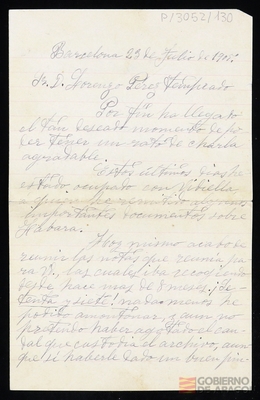 P/3052/130
Barcelona 23 de Julio de 190
Sr. D. Lorenzo Perez Temprado
Por fin ha llegado
el tan deseado momento de po
der tener un rato de charla
agradable.
Estos últimos dias he
estado ocupado con Vibiella
a quien he remitido algunos
importantes documentos sobre
Fabara.
Hoy mismo acabo de
reunir las notas que reunia para
V., las cuales iba recogiendo
desde hace mas de 8 meses; ¡Se
tenta y siete! nada menos he
podido amontonar, y aun no
pretendo haber agotado el cau
dal que custodia el archivo, aun
que si haberle dado un buen pin
GOBIERNO
DE ARAGON